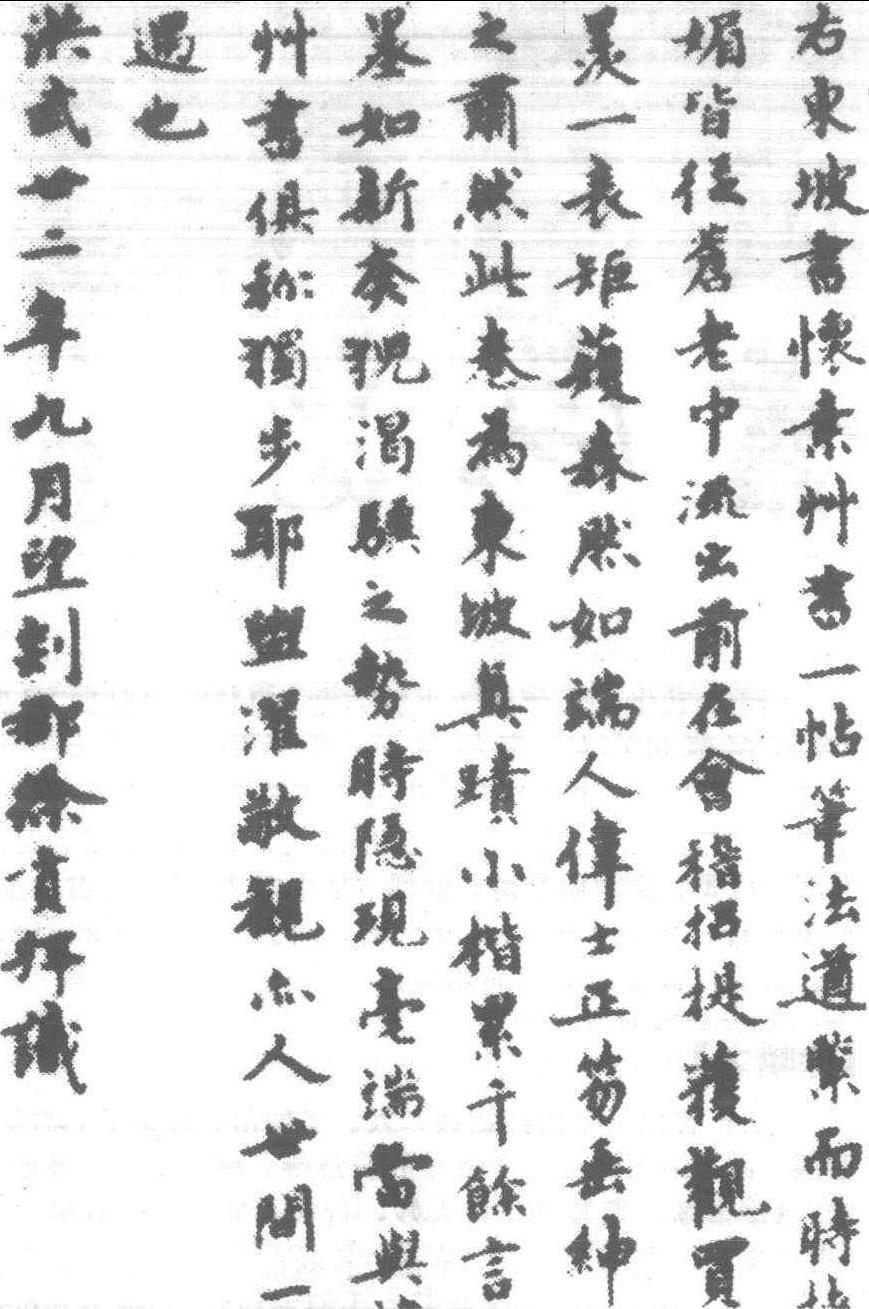 右東坡書懷素艸書一帖筆法遒緊而時
媚皆從蒼老中流出前在會稽招提獲觀
羨一表矩矱森然如端人偉士正笏垂紳
之爾然此卷為東坡真蹟小楷累千餘言
墨如新奔猊渴驥之勢時隱現毫端當與
艸書俱称獨步耶盥濯敬觀亦人世間一
遇也
洪武廿二年九月望郡徐賁拜識